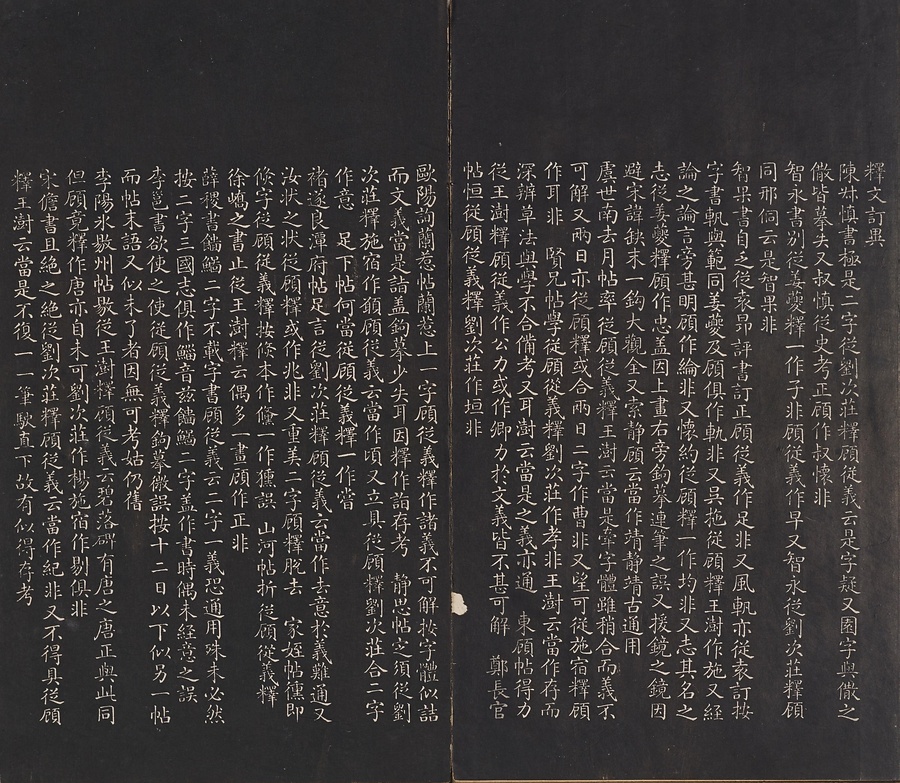 釋文訂異
陳叔慎書極是二字從劉次莊釋顧從義云是字疑又園字與儆之
儆皆摹失又叔慎從史考正顧作叔懷非
智永書别從姜夔釋一作子非顧從義作早又智永從劉次莊釋顧
同邢侗云是智果非
智果書自之從袁昂評書訂正顧從義作足非又風軌亦從袁訂按
字書軓與範同姜夔及顧俱作軌非又吳拖從顧釋王澍作施又經
論之論言旁甚明顧作綸非又懷約從顧釋一作均非又志其名之
志從姜夔釋顧作忠蓋因上畫右旁鉤摹連筆之誤又援鏡之鏡因
避宋諱缺末一鉤大觀全又索靜顧云當作靖靜靖古通用
虞世南去月帖率從顧從義釋王澍云當是偉字體雖稍合而義不
可解又兩日亦從顧釋或合兩日二字作曹非又望可從施宿釋顧
作耳非 賢兄帖學從顧從義釋劉次莊作孝非王澍云當作存而
深辨草法與學不合備考又耳澍云當是之義亦通 東顧帖得力
從王澍釋顧從義作公力或作卿力於文義皆不甚可解 鄭長官
帖恒從顧從義釋劉次莊作垣非
歐陽詢蘭惹帖蘭惹上一字顧從義釋作諸義不可解按字體似詰
而文義當是詣蓋鉤摹少失耳因釋作詣存考 靜思帖之須從劉
次莊釋施宿作額顧從義云當作頃又立具從顧釋劉次莊合二字
作意 足下帖何當從顧從義釋一作嘗
褚遂良潭府帖足言從劉次莊釋顧從義云當作去意於義難通又
汝狀之狀從顧釋或作兆非又重美二字顧釋脫去 家姪帖儵即
倏字從顧從義釋按倏本作儵一作㹅誤 山河帖折從顧從義釋
徐嶠之書止從王澍釋云偶多一書顧作正非
薛稷書鯔鯔二字不載字書顧從義云二字一義恐通用殊未必然
按二字三國志俱作鯔音玆鯔鯔二字蓋作書時偶未經意之誤
李邕書欲使之使從顧從義釋鉤摹微誤按十二日以下似另一帖
而帖末語又似未了者因無可考姑仍舊
李陽氷數州帖數從王澍釋顧從義云碧落碑有唐之唐正與此同
但顧竟釋作唐亦自未可劉次莊作楊施宿作剔俱非
宋儋書且絶之絶從劉次莊釋顧從義云當作紀非又不得具從顧
釋王澍云當是不復一一筆駃直下故有似得存考